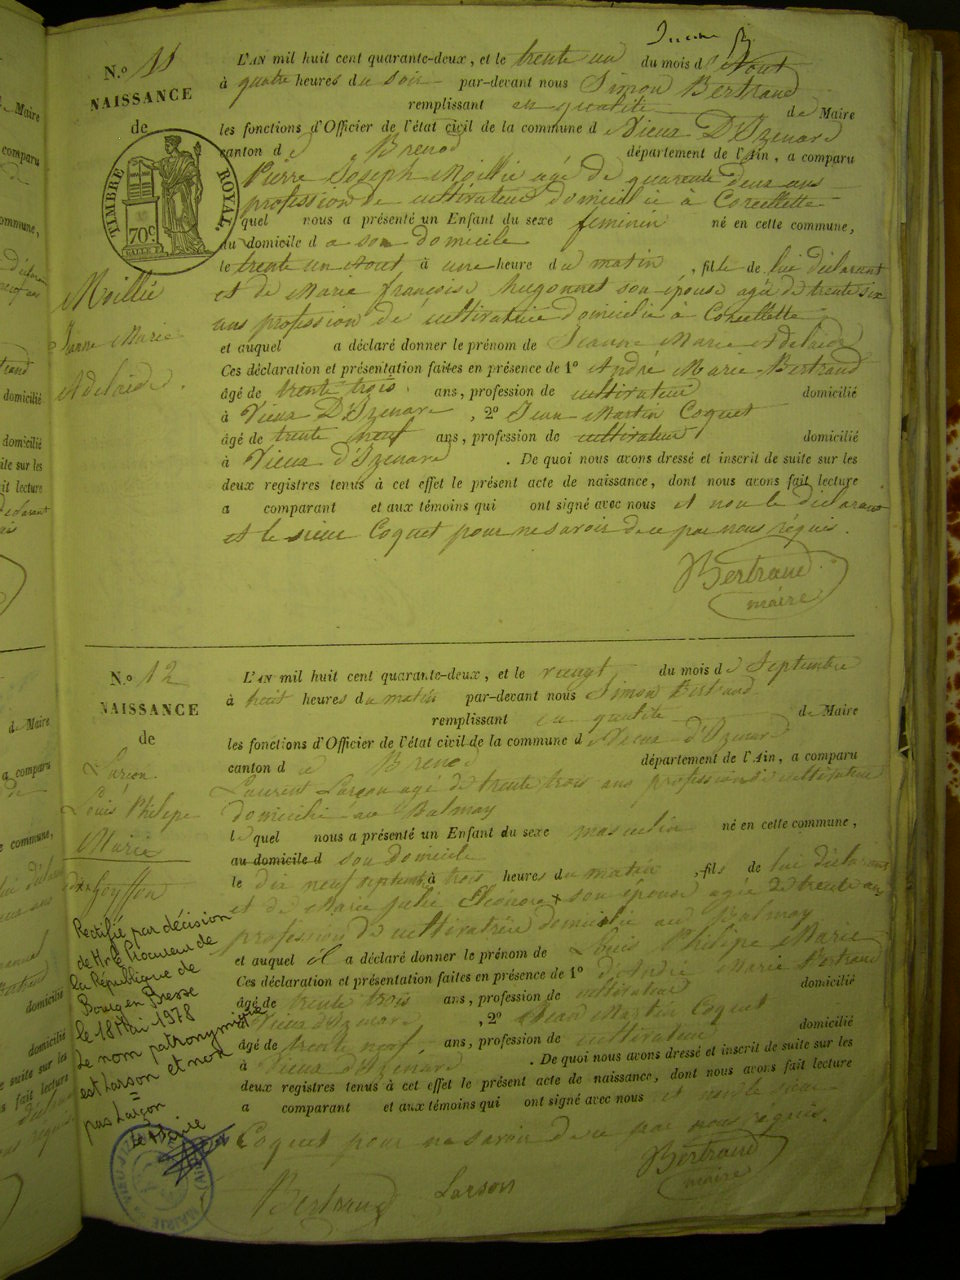 N.o 11
NAISSANCE
de
TIMBRE ROYAL.
70c
Moillie
Jeanne Marie
Adelaide.
L'AN mil huit cent quarante-deux, et le trente un du mois d'Aout
à quatre heures du soir par-devant nous Simon Bertrand
remplissant en qualité de Maire
les fonctions d'Officier de l'état civil de la commune d Vieux D'Izenard
canton de Brenod département de l'Ain, a comparu
Pierre Joseph Moillie agé de quarente deux ans
profession de cultivateur domicilié à Corcellette
quel nous a présenté un Enfant du sexe feminin né en cette commune,
du domicile d a son domicile
le trente un Aout à une heure du matin, fille de lui déclarant
et de Marie françoise hugonnet son épouse agée de trente six
ans profession de cultivatrice domicilié à Corcellette
et auquel a déclaré donner le prénom de Jeanne Marie Adelaide
Ces déclaration et présentation faites en présence de 1o André Marie Bertrand
âgé de trente trois ans, profession de cultivateur domicilié
à Vieux D'Izenave, 2o Jean Martin Coquet
âgé de trente neuf ans, profession de cultivateur domicilié
à Vieux d'Izenave. De quoi nous avons dressé et inscrit de suite sur les
deux registres tenus à cet effet le présent acte de naissance, dont nous avons fait lecture
a comparant et aux témoins qui ont signé avec nous et non le déclarant
et le sieur Coquet pour ne savoir de ce par nous réquis.
Bertrand
maire
N.o 12
NAISSANCE
de
Larçon
Louis Philipe
Marie
Goyffon
Rectifié par décision
de Mr le Procureur de
la République de
Bourg en Bresse
le 18 Mai 1978
Le nom patronymique
est Larson et non
pas Larçon
le Maire
L'AN mil huit cent quarante-deux, et le vingt du mois de Septembre
à huit heures du matin par-devant nous Simon Bertrand
remplissant en qualité de Maire
les fonctions d'Officier de l'état civil de la commune d Vieux d'Izenard
canton de Brenod département de l'Ain, a comparu
Laurent Larçon agé de trente trois ans profession de cultivateur
domicilié au Balmay
le quel nous a présenté un Enfant du sexe masculin né en cette commune,
au domicile d son domicile
le dix neuf septembre à trois heures du matin, fils de lui déclarant
et de Marie Julie Eléonore x son épouse agée de trente ans
profession de cultivatrice domicilié au Balmay
et auquel il a déclaré donner le prénom de Louis Philipe Marie
Ces déclaration et présentation faites en présence de 1o d'André Marie Bertrand
âgé de trente trois ans, profession de cultivateur domicilié
à Vieux d'Izenave, 2o Jean Martin Coquet
âgé de trente neuf ans, profession de cultivateur domicilié
à Vieux d'Izenard. De quoi nous avons dressé et inscrit de suite sur les
deux registres tenus à cet effet le présent acte de naissance, dont nous avons fait lecture
a comparant et aux témoins qui ont signé avec nous et non le sieur
Coquet pour ne savoir de ce par nous requis.
Bertrand Larson Bertrand
maire